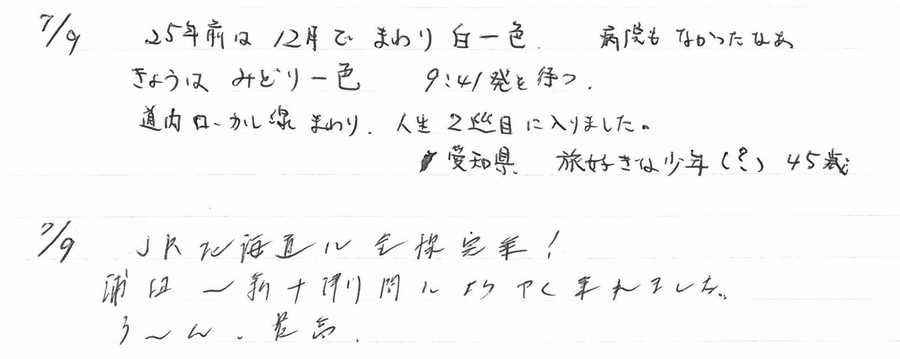 7/9 25年前は12月でまわり白一色. 病院もなかったなあ
きょうは みどり一色 9:41発を待つ.
道内ローカル線まわり. 人生2巡目に入りました。
愛知県 旅好きな少年(?) 45歳
7/9 JR北海道ル全線完乗!
浦臼〜新十津川間にようやく乗れました。
う〜ん. 最高.